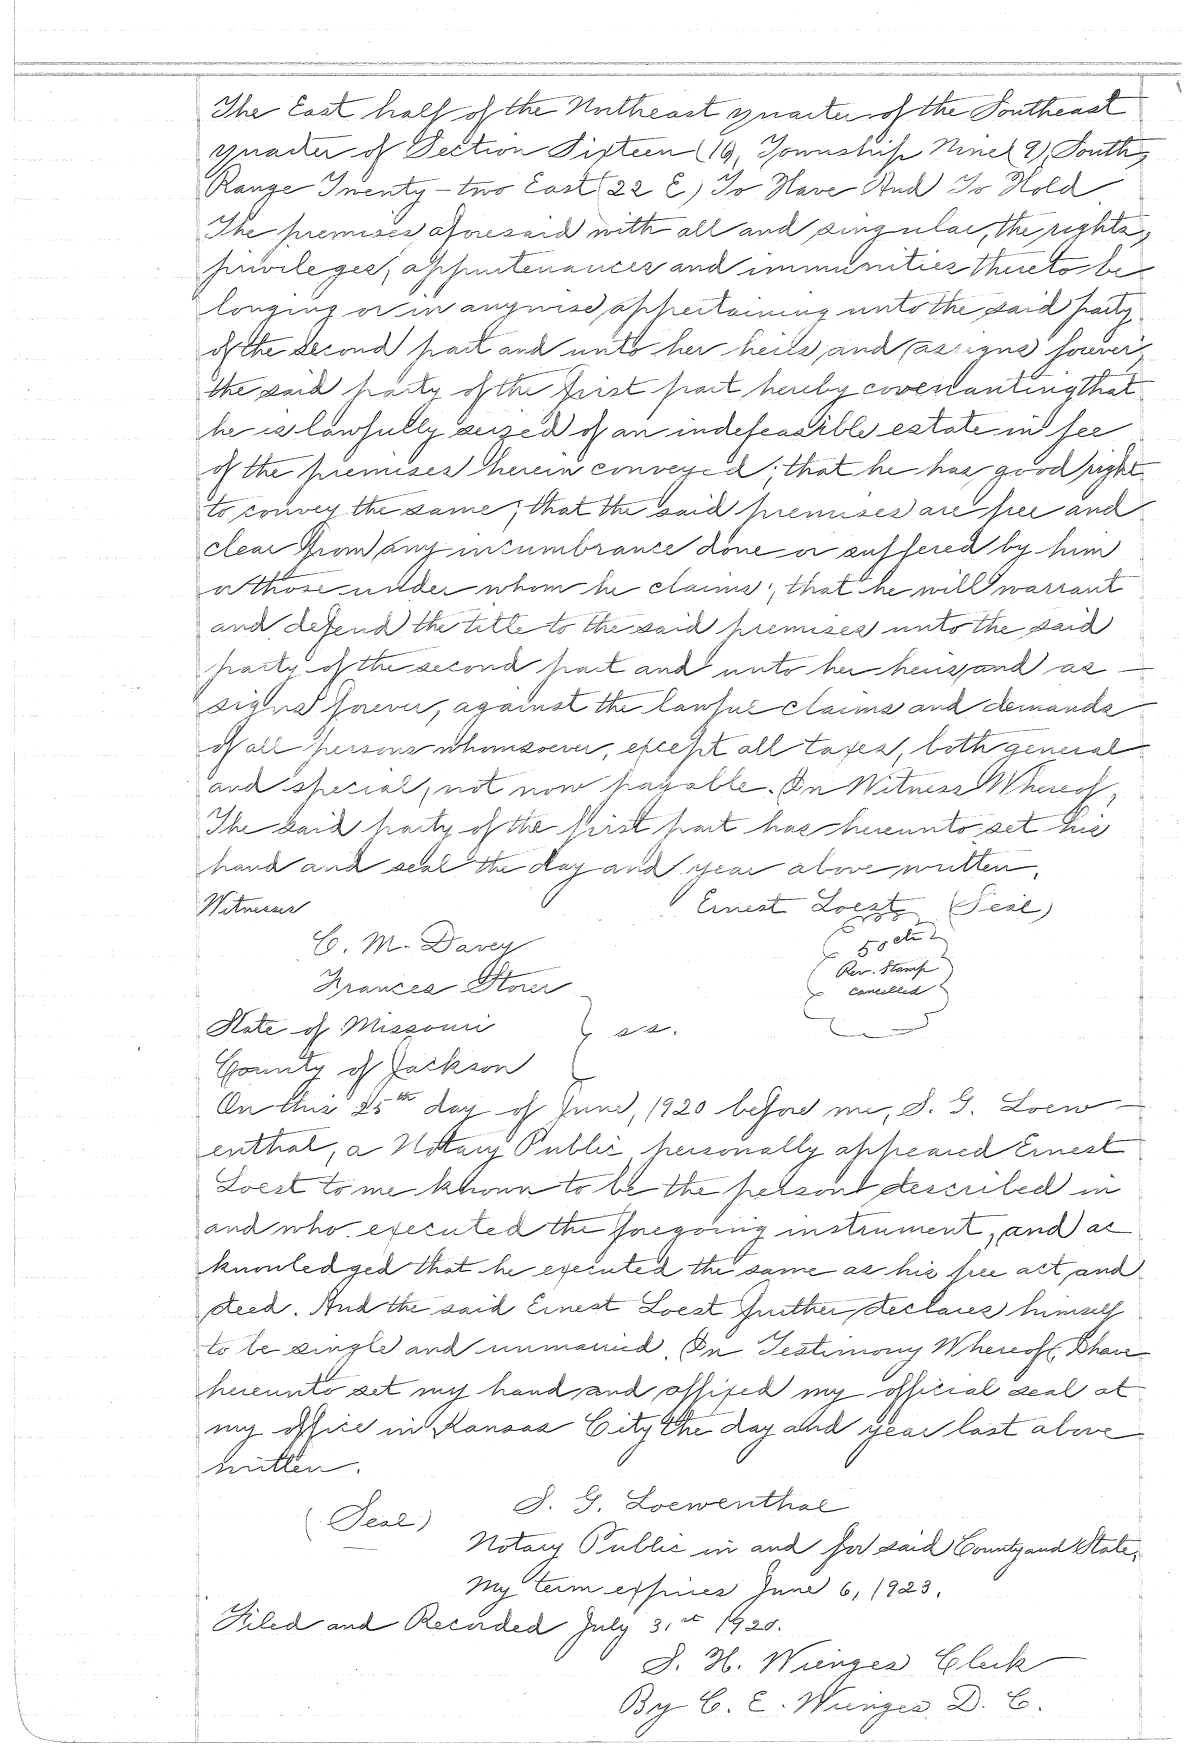 The East half of the Northeast quarter of the Southeast
quarter of Section Sixteen (16), Township Nine (9), South,
Range Twenty-two East (22 E) To Have And To Hold
The premises aforesaid with all and singular, the rights,
privileges, appurtenances and immunities thereto be
longing or in anywise appertaining unto the said party
of the second part and unto her heirs, and assigns forever,
the said party of the first part hereby covenanting that
he is lawfully seized of an indefeasible estate in fee
of the premises herein conveyed; that he has good right
to convey the same; that the said premises are free and
clear from any incumbrance done or suffered by him
or those under whom he claims; that he will warrant
and defend the title to the said premises unto the said
party of the second part and unto her heirs, and as-
signs forever, against the lawful claims and demands
of all persons whomsoever, except all taxes, both general
and special, not now payable. In Witness Whereof,
The said party of the first part has hereunto set his
hand and seal the day and year above written.
Witnesses Ernest Loest (Seal)
C. M. Davey 50 cts
Frances Storer Rev. Stamp
cancelled
State of Missouri } ss.
County of Jackson
On this 25th day of June, 1920 before me, S. G. Loew-
enthal, a Notary Public, personally appeared Ernest
Loest to me known to be the person described in
and who executed the foregoing instrument, and ac
knowledged that he executed the same as his free act and
deed. And the said Ernest Loest further declares himself
to be single and unmarried. In Testimony Whereof, I have
hereunto set my hand and affixed my official seal at
my office in Kansas City the day and year last above
written.
S. G. Loewenthal
(Seal)
Notary Public in and for said County and State,
My term expires June 6, 1923.
Filed and Recorded July 31st 1920.
S. H. Wienges Clerk
By C. E. Wienges D. C.